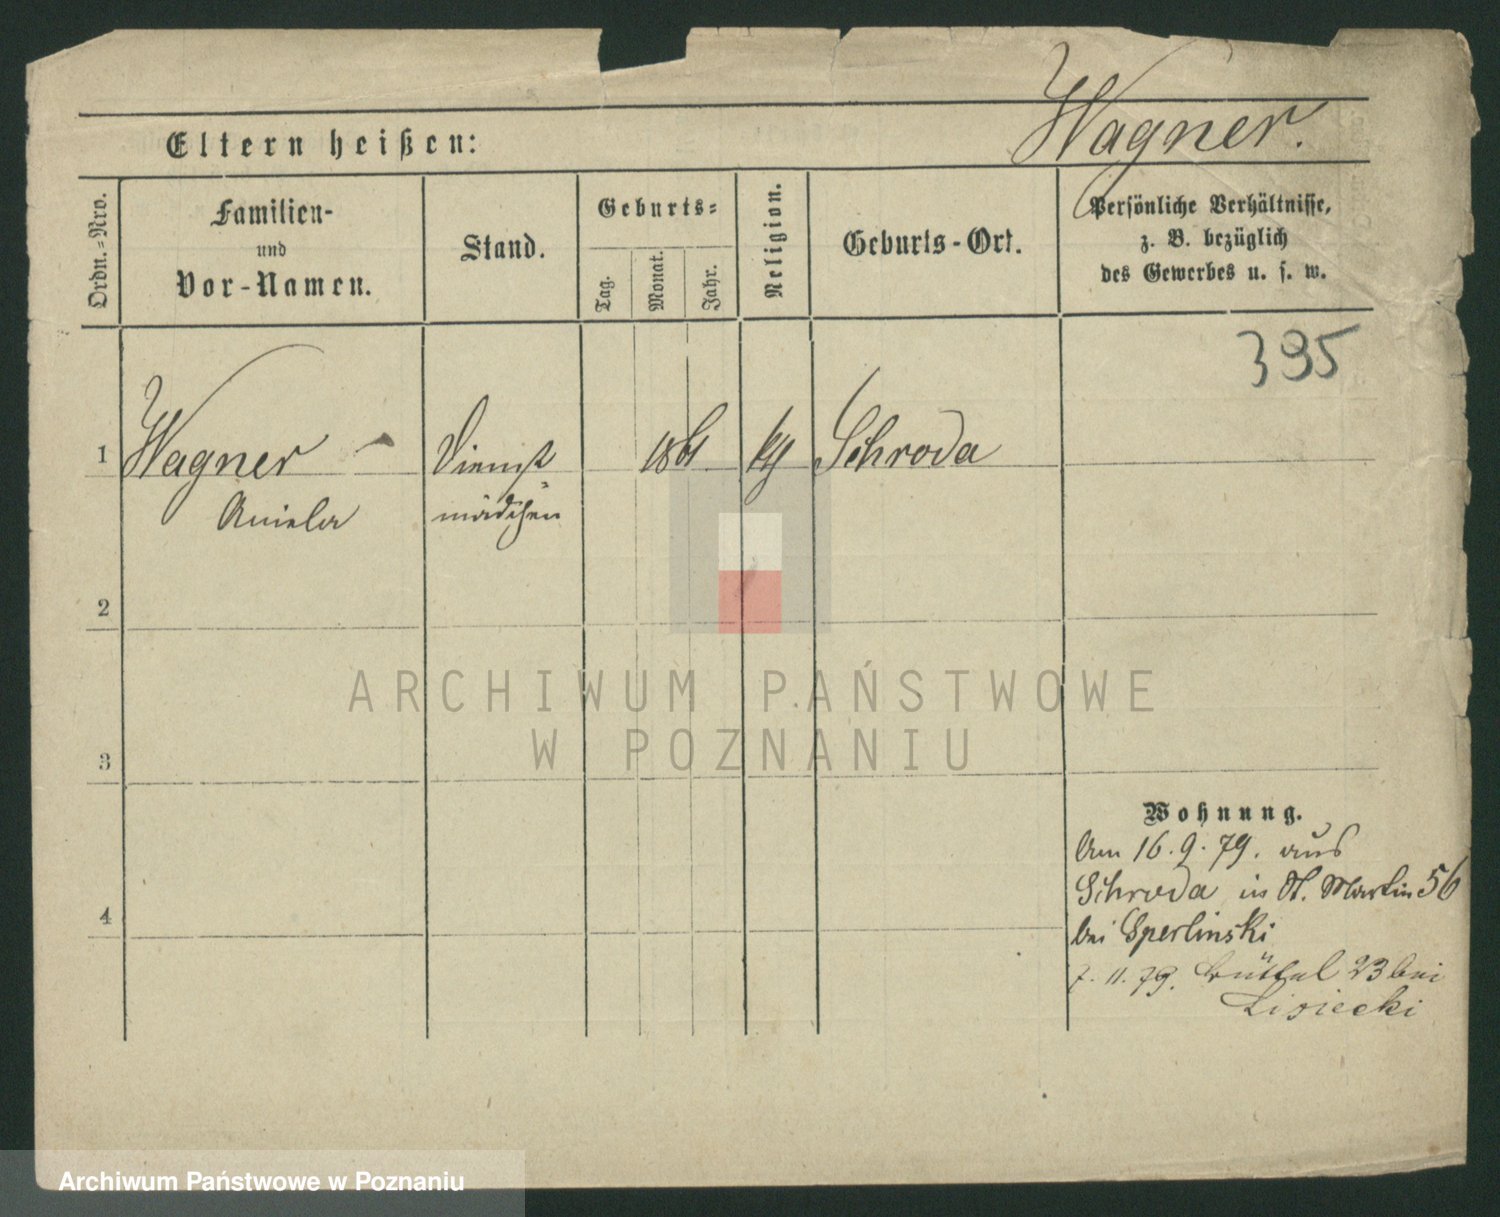 Wagner.
Eltern heißen:
Ordn.-Nro.
Familien-
und
Vor-Namen.
Stand.
Geburts-
Tag.
Monat.
Jahr.
Religion.
Geburts-Ort.
Persönliche Verhältnisse,
z. B. bezüglich
des Gewerbes u. s. w.
395
1
Wagner
Dienst
1861
Schroda
Aniela
mädchen
2
3
4
ARCHIWUM PAŃSTWOWE
W POZNANIU
Wohnung.
Am 16.9.79. aus
Schroda in St. Martin 56
bei Sperlinski
7.11.79. Büttel 23 bei
Lisiecki
Archiwum Państwowe w Poznaniu